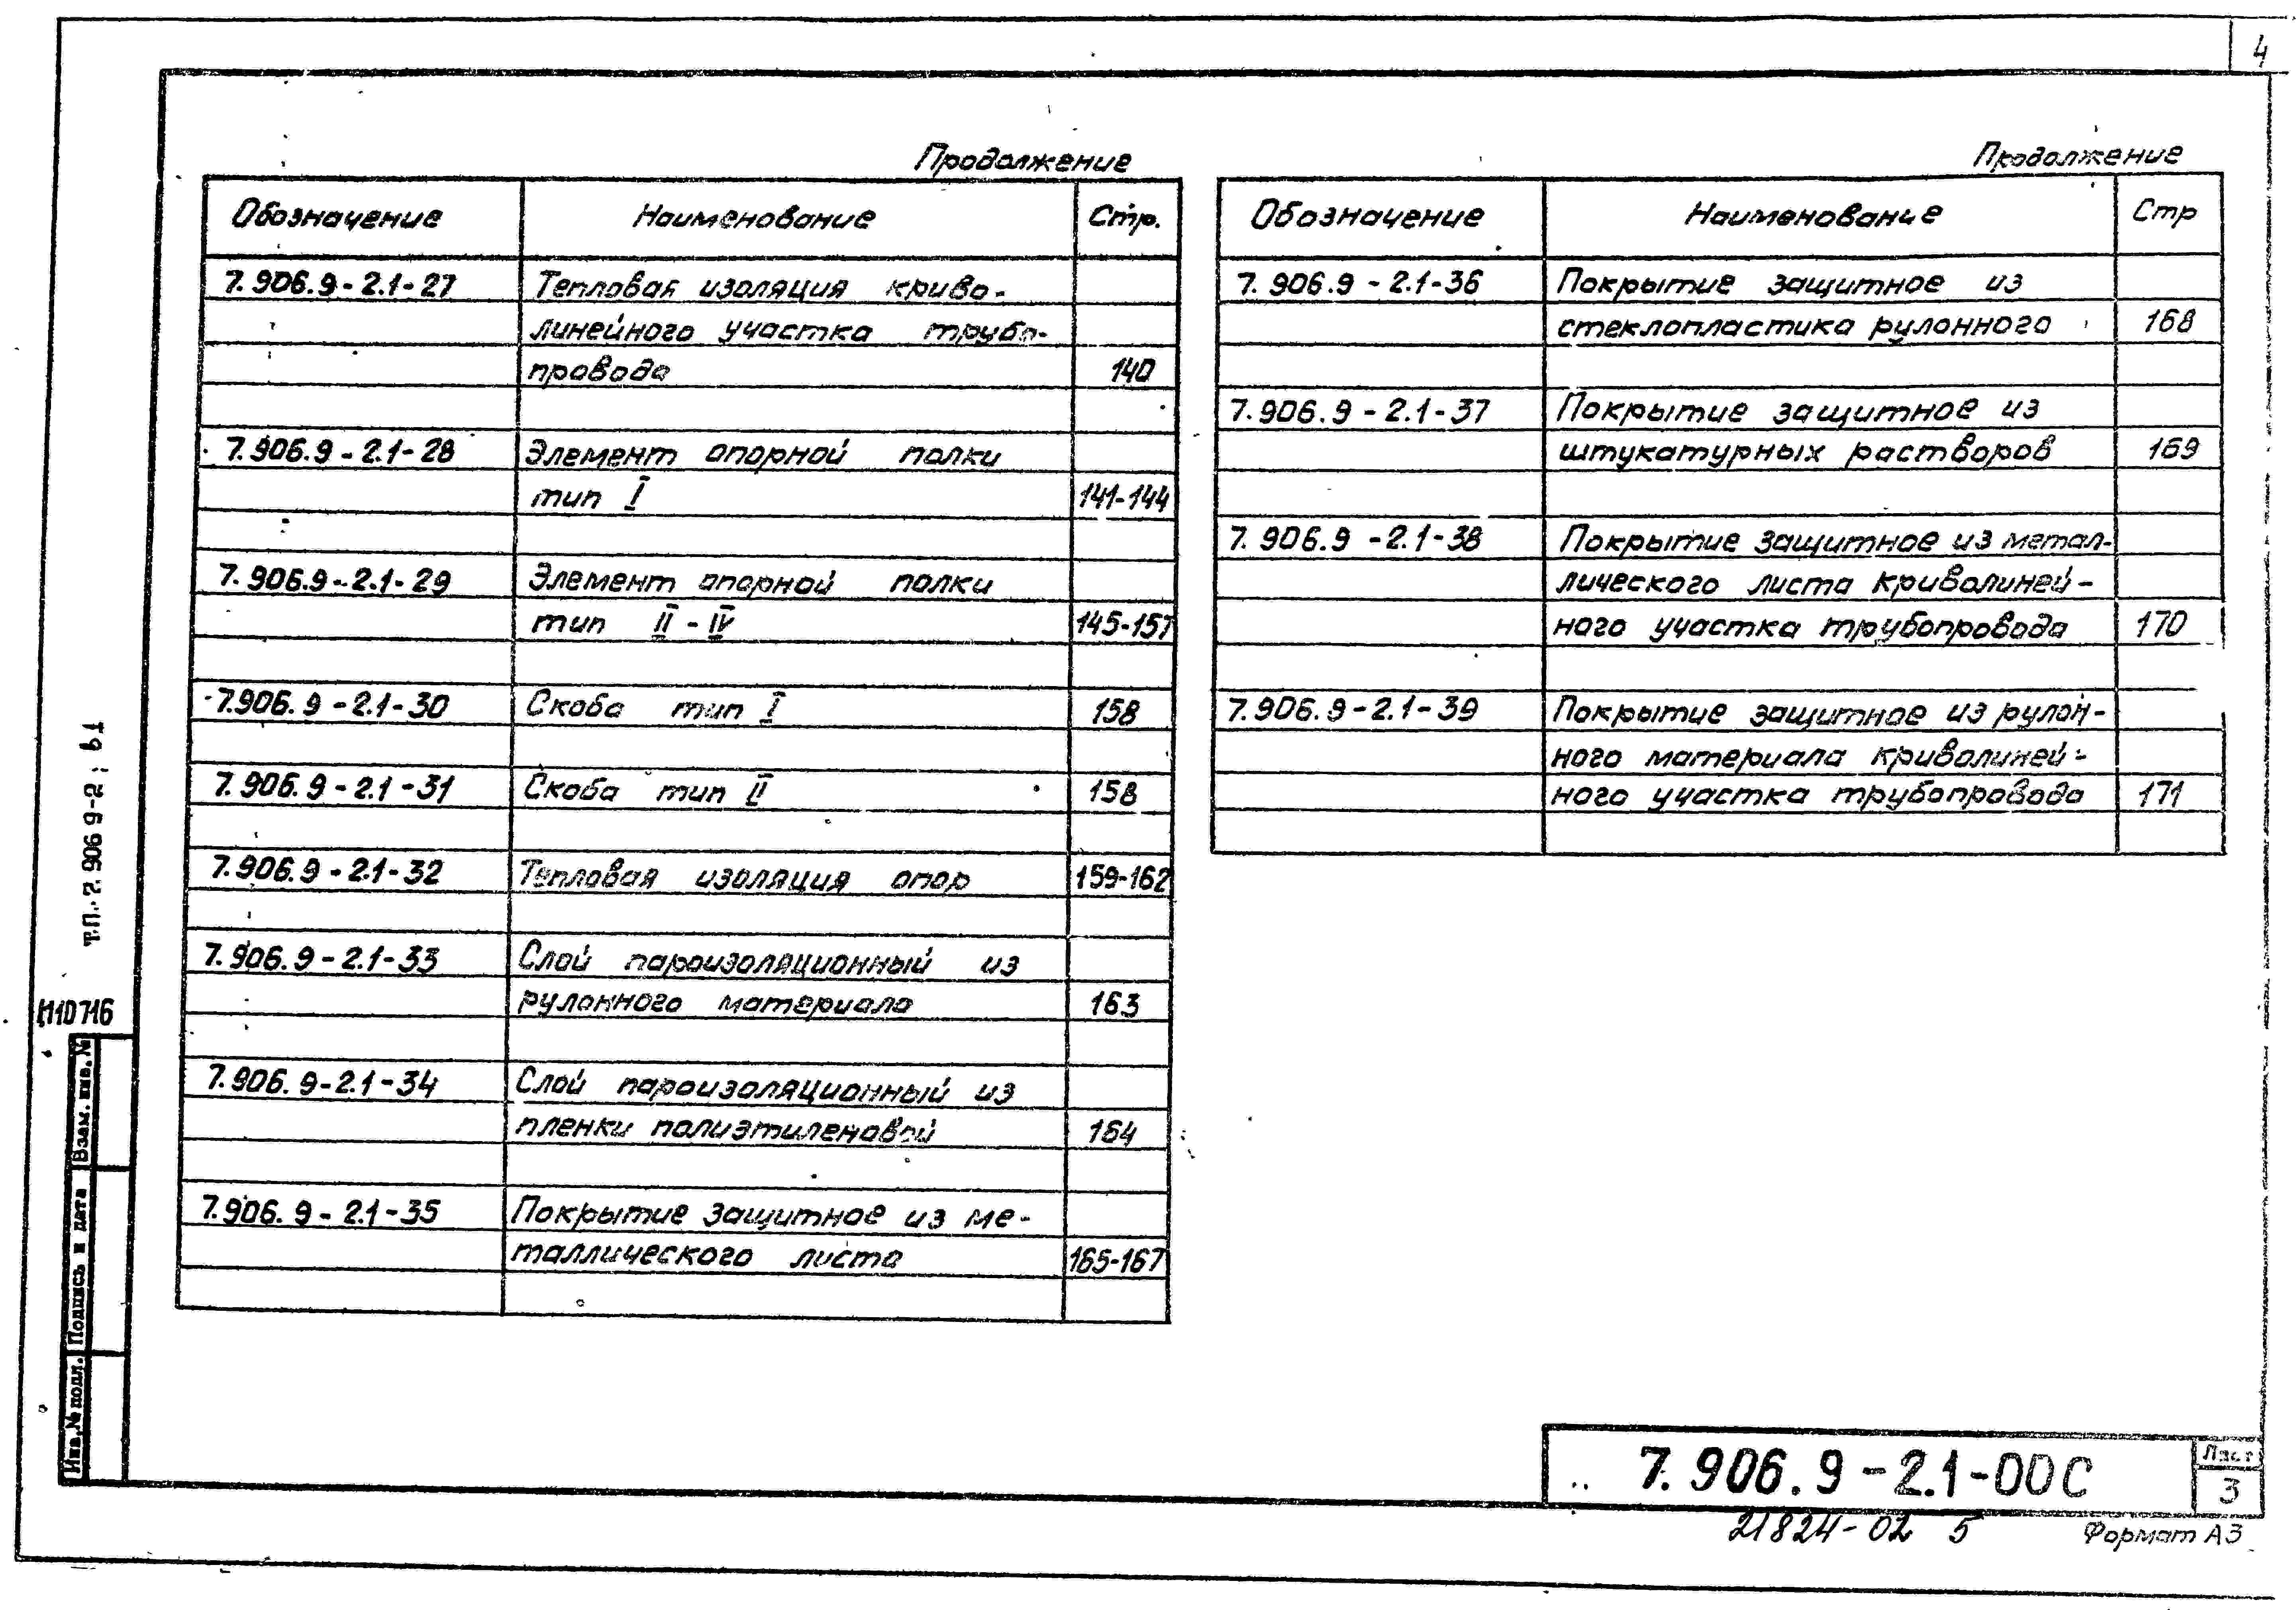 4
Продолжение
Обозначение Наименование Стр.
7.906.9-2.1-27 Тепловая изоляция криво-
линейного участка трубо-
провода 140
7.906.9-2.1-28 Элемент опорной полки
тип I 141-144
7.906.9-2.1-29 Элемент опорной полки
тип II - IV 145-157
7.906.9-2.1-30 Скоба тип I 158
7.906.9-2.1-31 Скоба тип II 158
7.906.9-2.1-32 Тепловая изоляция опор 159-162
7.906.9-2.1-33 Слой пароизоляционный из
рулонного материала 163
7.906.9-2.1-34 Слой пароизоляционный из
пленки полиэтиленовой 164
7.906.9-2.1-35 Покрытие защитное из ме-
таллического листа 165-167
Продолжение
Обозначение Наименование Стр
7.906.9-2.1-36 Покрытие защитное из
стеклопластика рулонного 168
7.906.9-2.1-37 Покрытие защитное из
штукатурных растворов 169
7.906.9-2.1-38 Покрытие защитное из метал-
лического листа криволиней-
ного участка трубопровода 170
7.906.9-2.1-39 Покрытие защитное из рулон-
ного материала криволиней-
ного участка трубопровода 171
т.п. 7.906 9-2;
10716
Взам. инв. №
Подпись и дата
Инв. № подл.
7.906.9-2.1-00С
Лист
3
21824-02 5
Формат А3